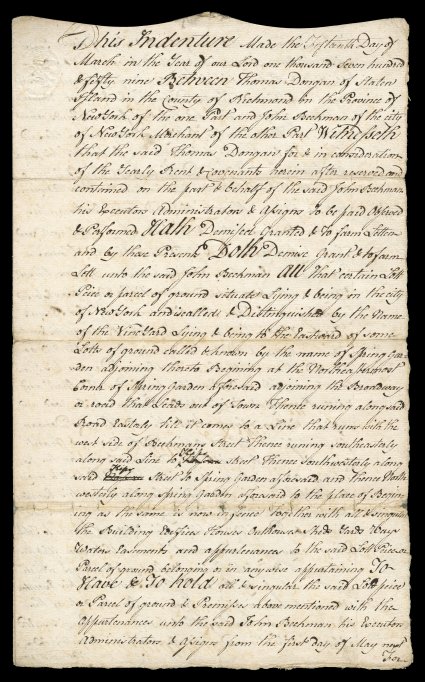 This Indenture Made the Fiftenth Day of
March in the Year of our Lord one thousand Seven hundred
& fifty nine Between Thomas Dongan of Staten
Island in the County of Richmond in the Province of
New York of the one Part and John Beekman of the city
of New York Merchant of the other Part Witnesseth
that the said Thomas Dongan for & in consideration
of the Yearly Rent & covenants herein after reserved and
contained on the part & behalf of the said John Beekman
his Executors Administrators & Assigns to be paid
& Performed Hath Demised Granted & to farm Letten
and by these Presents Doth Demise Grant & to farm
Lett unto the said John Beekman All that certain Lott
Peice or parcel of ground situate Lying & being in the city
of New York and is called & Distinguished by the Name
of the Vineyard Lying & being to the Eastward of some
Lotts of ground called & known by the name of Spring Gar
den adjoining thereto Begining at the
Corner of Spring Garden aforesaid adjoining the Broadway
or road that Leads out of Town Thence runing along said
Road Easterly till it comes to a Line that runs with the
west side of Beekmans Street Thence runing southeasterly
along said Line to street Thence Southwesterly along
said Street to Spring Garden aforesaid and thence North
westerly along Spring Garden aforesaid to the place of Begin
ing as the same is now in fence Together with all & singular
the Building Edifices Houses Outhouses Yards Ways
Waters Easments and appurtenances to the said Lott Peice or
Parcel of ground belonging or in any wise appertaining To
Have & To hold all & singular the said Lott peice
or Parcel of ground & Premises above mentioned with the
appurtenances unto the said John Beekman his Executors
Administrators & Assigns from the first day of May next
For